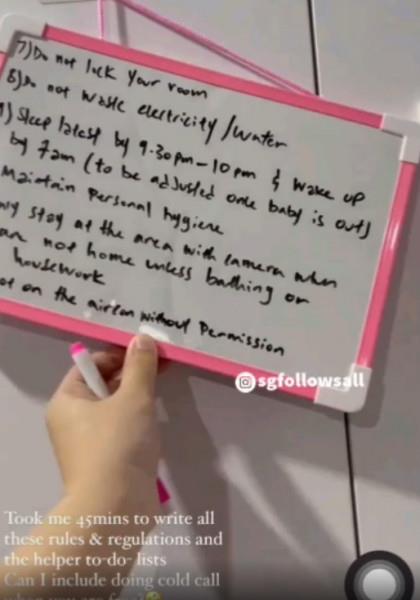 7) Do not lock your room
8) Do not waste electricity / water
9) Sleep latest by 9.30pm - 10pm & wake up
by 7am (to be adjusted once baby is out)
Maintain Personal hygiene
stay at the area with camera when
are not home unless bathing or
housework
on the aircon without Permission
sgfollowsall
Took me 45mins to write all
these rules & regulations and
the helper to-do- lists
Can I include doing cold call
when you are free?